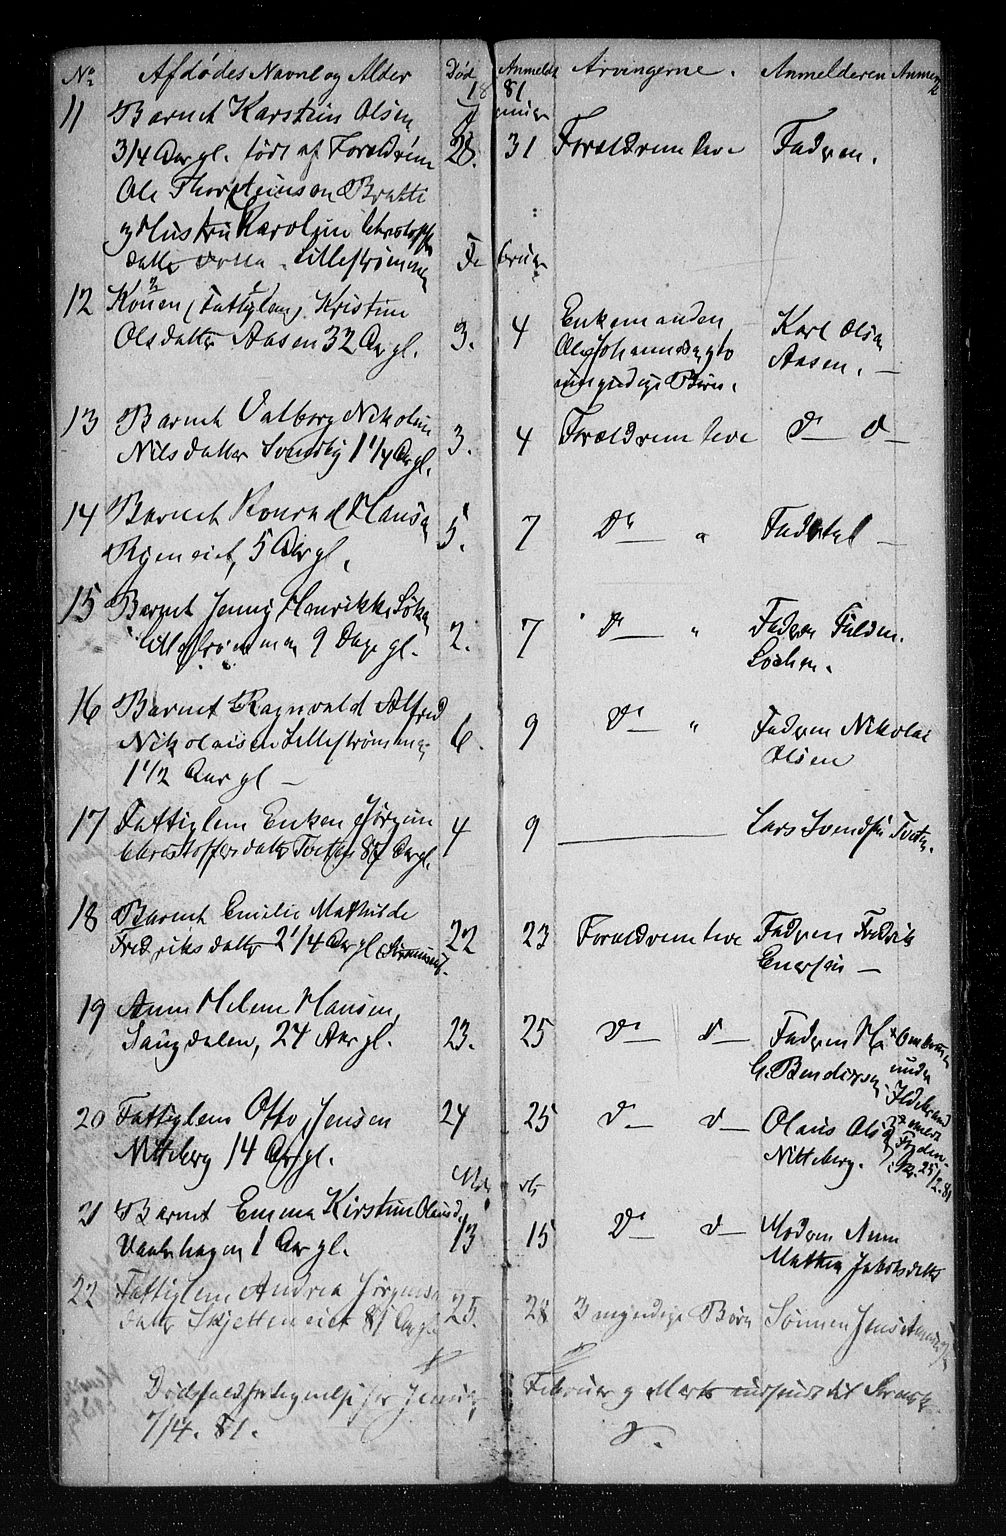 No Afdødes Navne og Alder Død Anmeldt Arvingerne. Anmelderen Anmerk
1881
Januar
11 Barnet Karstin Olsen
3/4 Aar gl. født af Forældrene 28. 31 Forældrene leve Faderen.
Ole Thorsteinsen Bratti
og Hustru Karoline Christoffer
datter Lillestrømmen
Februar
12 Konen (Fattiglem) Kristine
Olsdatter Aasen 32 Aar gl. 3. 4 Enkemanden Karl Olsen
Ole Johannesen, to Aasen.
umyndige Børn.
13 Barnet Valborg Nikoline
Nilsdatter Svendby 1 1/4 Aar gl. 3. 4 Forældrene leve Do Do
14 Barnet Konrad Hansen
Ryeneiet, 5 Aar gl. 5. 7 Do "
15 Barnet Jenny Henrikke
Lillestrømmen 9 Dage gl. 2. 7 Do " Faderen
16 Barnet Ragnvald Alfred
Nikolaisen Lillestrømmen 6. 9 Do " Faderen Nikolai
1 1/2 Aar gl Olsen
17 Fattiglem Enken Jørgine 4 9 Lars Svendsen Tveten.
Christoffersdatter 87 Aar gl.
18 Barnet Emilie Mathilde
Fredriksdatter 2 1/4 Aar gl 22 23 Forældrene leve Faderen Fredrik
Enersen
19 Anne Helene Hansen,
24 Aar gl. 23. 25 Do Do Faderen H
G. Bendixsen
20 Fattiglem Otto Jensen 24 25 Do Do Olaus Olsen
Nitteberg 14 Aar gl. Nitteberg. 25/2. 81
Marts
21 Barnet Emma Kirstine Olausd.
1 Aar gl. 13 15 Do Do Moderen Anne
Mathea Jakobsdatter
22 Fattiglem Andrea Jørgens
datter Skjetteneiet 81 Aar gl 25. 28 3 myndige Børn Sønnen Jens
Dødsfaldsfortegnelse for Januar, Februar og Marts indsendt til
7/4. 81.